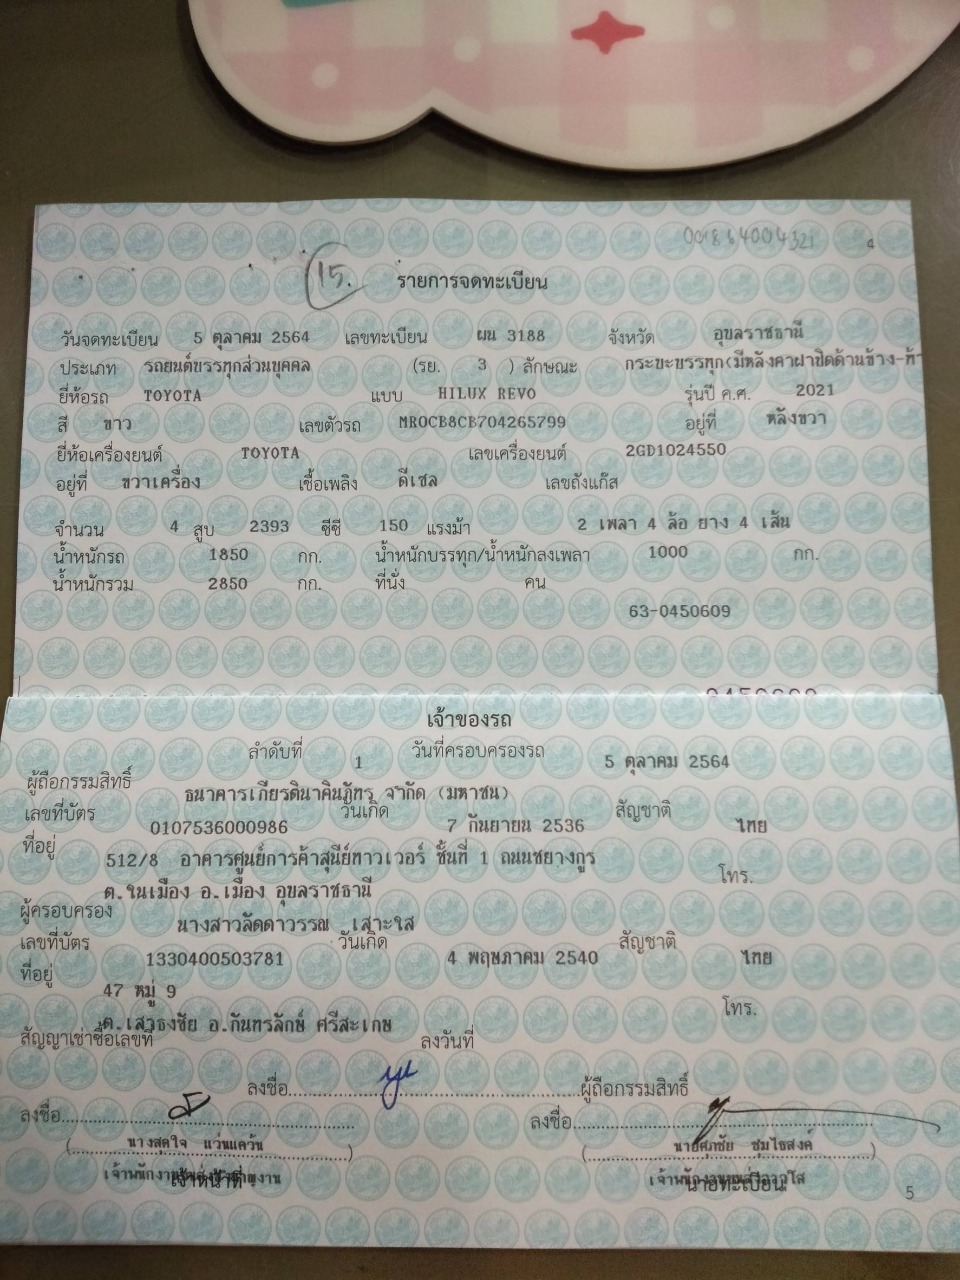 001864004321 4
15. รายการจดทะเบียน
วันจดทะเบียน 5 ตุลาคม 2564 เลขทะเบียน ผน 3188 จังหวัด อุบลราชธานี
ประเภท รถยนต์บรรทุกส่วนบุคคล (รย. 3 ) ลักษณะ กระบะบรรทุก(มีหลังคาฝาปิดด้านข้าง-ท้า
ยี่ห้อรถ TOYOTA แบบ HILUX REVO รุ่นปี ค.ศ. 2021
สี ขาว เลขตัวรถ MR0CB8CB704265799 อยู่ที่ หลังขวา
ยี่ห้อเครื่องยนต์ TOYOTA เลขเครื่องยนต์ 2GD1024550
อยู่ที่ ขวาเครื่อง เชื้อเพลิง ดีเซล เลขถังแก๊ส
จำนวน 4 สูบ 2393 ซีซี 150 แรงม้า 2 เพลา 4 ล้อ ยาง 4 เส้น
น้ำหนักรถ 1850 กก. น้ำหนักบรรทุก/น้ำหนักลงเพลา 1000 กก.
น้ำหนักรวม 2850 กก. ที่นั่ง คน
63-0450609
เจ้าของรถ
ลำดับที่ 1 วันที่ครอบครองรถ 5 ตุลาคม 2564
ผู้ถือกรรมสิทธิ์ ธนาคารเกียรตินาคินภัทร จำกัด (มหาชน)
เลขที่บัตร 0107536000986 วันเกิด 7 กันยายน 2536 สัญชาติ ไทย
ที่อยู่ 512/8 อาคารศูนย์การค้าสุนีย์ทาวเวอร์ ชั้นที่ 1 ถนนชยางกูร
ต.ในเมือง อ.เมือง อุบลราชธานี โทร.
ผู้ครอบครอง นางสาวลัดดาวรรณ เสาะใส
เลขที่บัตร 1330400503781 วันเกิด 4 พฤษภาคม 2540 สัญชาติ ไทย
ที่อยู่ 47 หมู่ 9
ต.เสาธงชัย อ.กันทรลักษ์ ศรีสะเกษ โทร.
สัญญาเช่าซื้อเลขที่ ลงวันที่
ลงชื่อ ผู้ถือกรรมสิทธิ์
ลงชื่อ ลงชื่อ
( นางสุดใจ แว่นแคว้น ) ( นายศุภชัย ชุมไธสงค์ )
เจ้าหน้าที่ นายทะเบียน
5